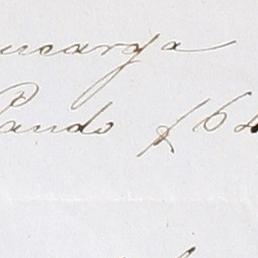 ucarga
Pando f 64